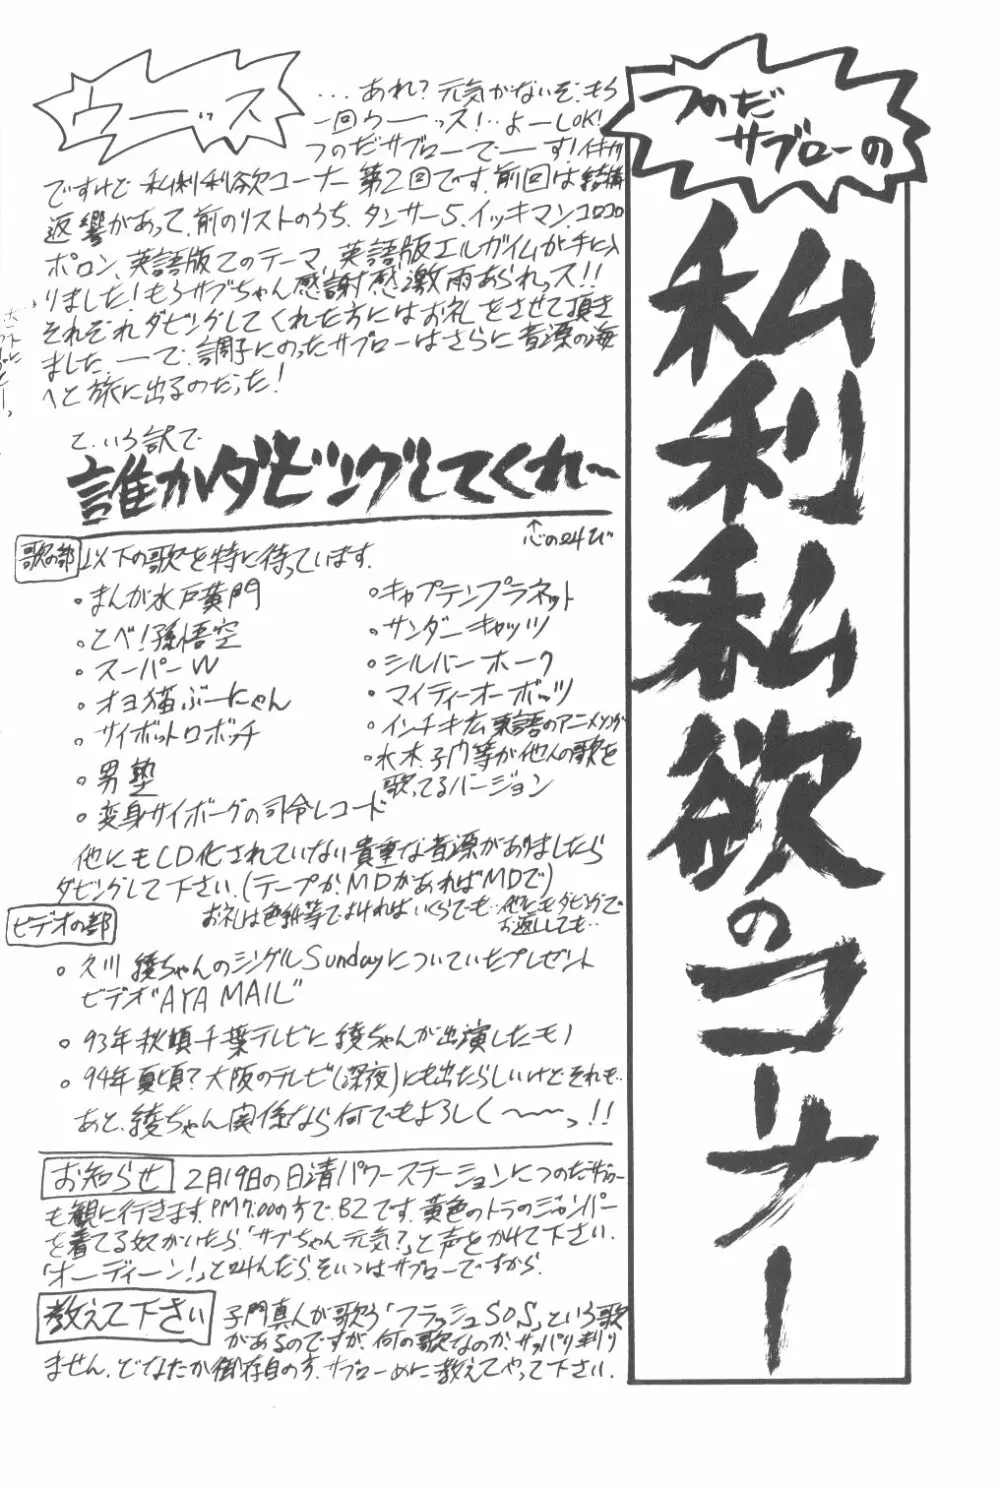 つのだ
サブローの
私利私欲のコーナー
ウーッス
...あれ?元気がないぞ.もう
一回ウーーッス!..よーしOK!
つのだサブローでーーす!イキナリ
ですけど私利私欲コーナー第2回です.前回は結構
返響があって、前のリストのうち、タンサー5.イッキマン.コロコロ
ポロン、英語版Zのテーマ、英語版エルガイムが手に入
りました!もうサブちゃん感謝感激雨あられっス!!
それぞれダビングしてくれた方にはお礼をさせて頂き
ました.ーーで、調子にのったサブローはさらに音源の海
へと旅に出るのだった!
と.いう訳で
誰かダビングしてくれ〜
↑心の叫び
歌の部 以下の歌を特に待っています.
・まんが水戸黄門
・とべ!孫悟空
・スーパーW
・オヨ猫ぶーにゃん
・サイボットロボッチ
・男塾
・変身サイボーグの司令レコード
・キャプテンプラネット
・サンダーキャッツ
・シルバーホーク
・マイティーオーボッツ
・インチキ広東語のアニメソング
・水木、子門等が他人の歌を
歌ってるバージョン
他にもCD化されていない貴重な音源がありましたら
ダビングして下さい.(テープか、MDがあればMDで)
お礼は色紙等でよければいくらでも…他にもダビングで
お返ししても…
ビデオの部
○久川綾ちゃんのシングルSundayについていたプレゼント
ビデオ"AYA MAIL"
○93年秋頃千葉テレビに綾ちゃんが出演したモノ
○94年夏頃?大阪のテレビ(深夜)にも出たらしいけどそれも…
あと、綾ちゃん関係なら何でもよろしく〜〜〜っ!!
お知らせ 2月19日の日清パワーステーションにつのだサブロー
も観に行きます.PM7:00の方で.B2です.黄色のトラのジャンパー
を着てる奴がいたら「サブちゃん元気?」と声をかけて下さい.
「オーディーン!」と叫んだら、そいつはサブローですから.
教えて下さい 子門真人が歌う「フラッシュSOS」という歌
があるのですが、何の歌なのか、サッパリ判り
ません.どなたか御存自の方、サブローめに教えてやって下さい.